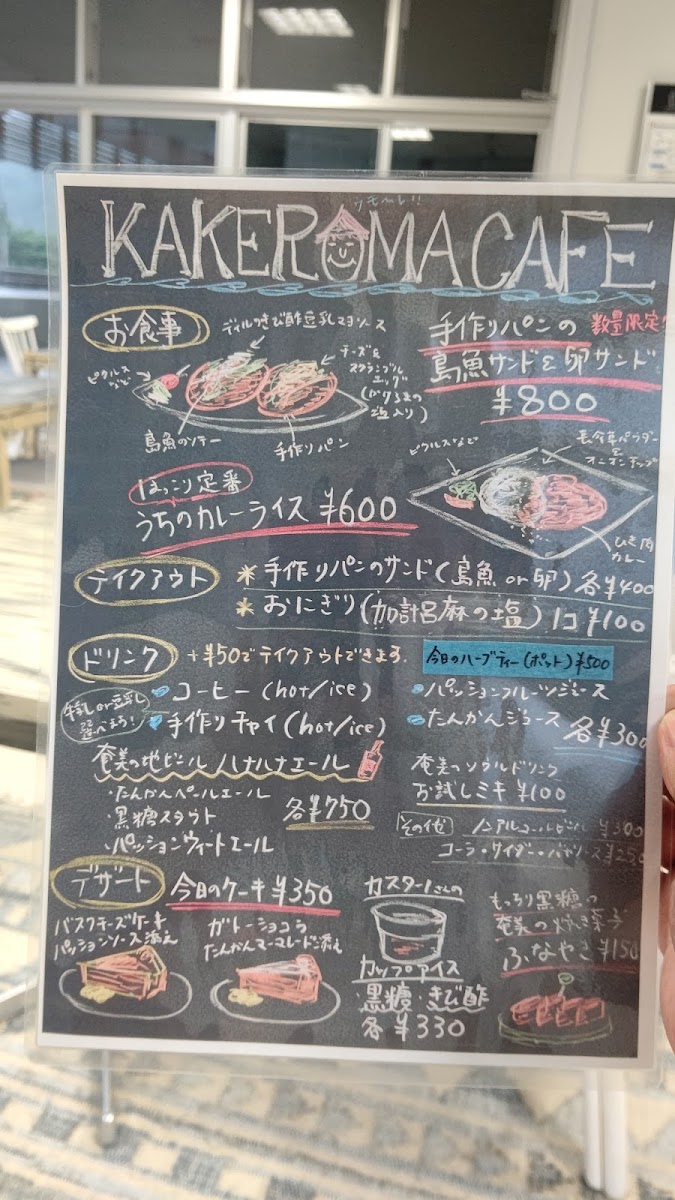 KAKEROMA CAFE
お食事
ディルのきび酢豆乳マヨソース
ピクルスなど
チーズ&
スクランブル
エッグ
(かけろまの
塩入り)
島魚のソテー
手作りパン
手作りパンの 数量限定!
島魚サンド&卵サンド
¥800
ほっこり定番
うちのカレーライス ¥600
ピクルスなど
長命草パウダー
&
オニオンチップ
ひき肉
カレー
テイクアウト
* 手作りパンのサンド(島魚 or 卵) 各¥400
* おにぎり(加計呂麻の塩) 1コ ¥100
ドリンク
+¥50でテイクアウトできます.
今日のハーブティー(ポット)¥500
牛乳 or 豆乳
選べます!
コーヒー (hot/ice)
手作りチャイ (hot/ice)
パッションフルーツジュース
たんかんジュース 各¥300
奄美の地ビール ハナハナエール
・たんかんペールエール
・黒糖スタウト
・パッションウィートエール
各¥750
奄美のソウルドリンク
お試しミキ ¥100
その他 ノンアルコールビール ¥300
コーラ・サイダー・バヤリース ¥250
デザート
今日のケーキ ¥350
バスクチーズケーキ
パッションソース添え
ガトーショコラ
たんかんマーマレード添え
カスターさんの
カップアイス
黒糖・きび酢
各 ¥330
もっちり黒糖の
奄美の焼き菓子
ふなやき ¥150